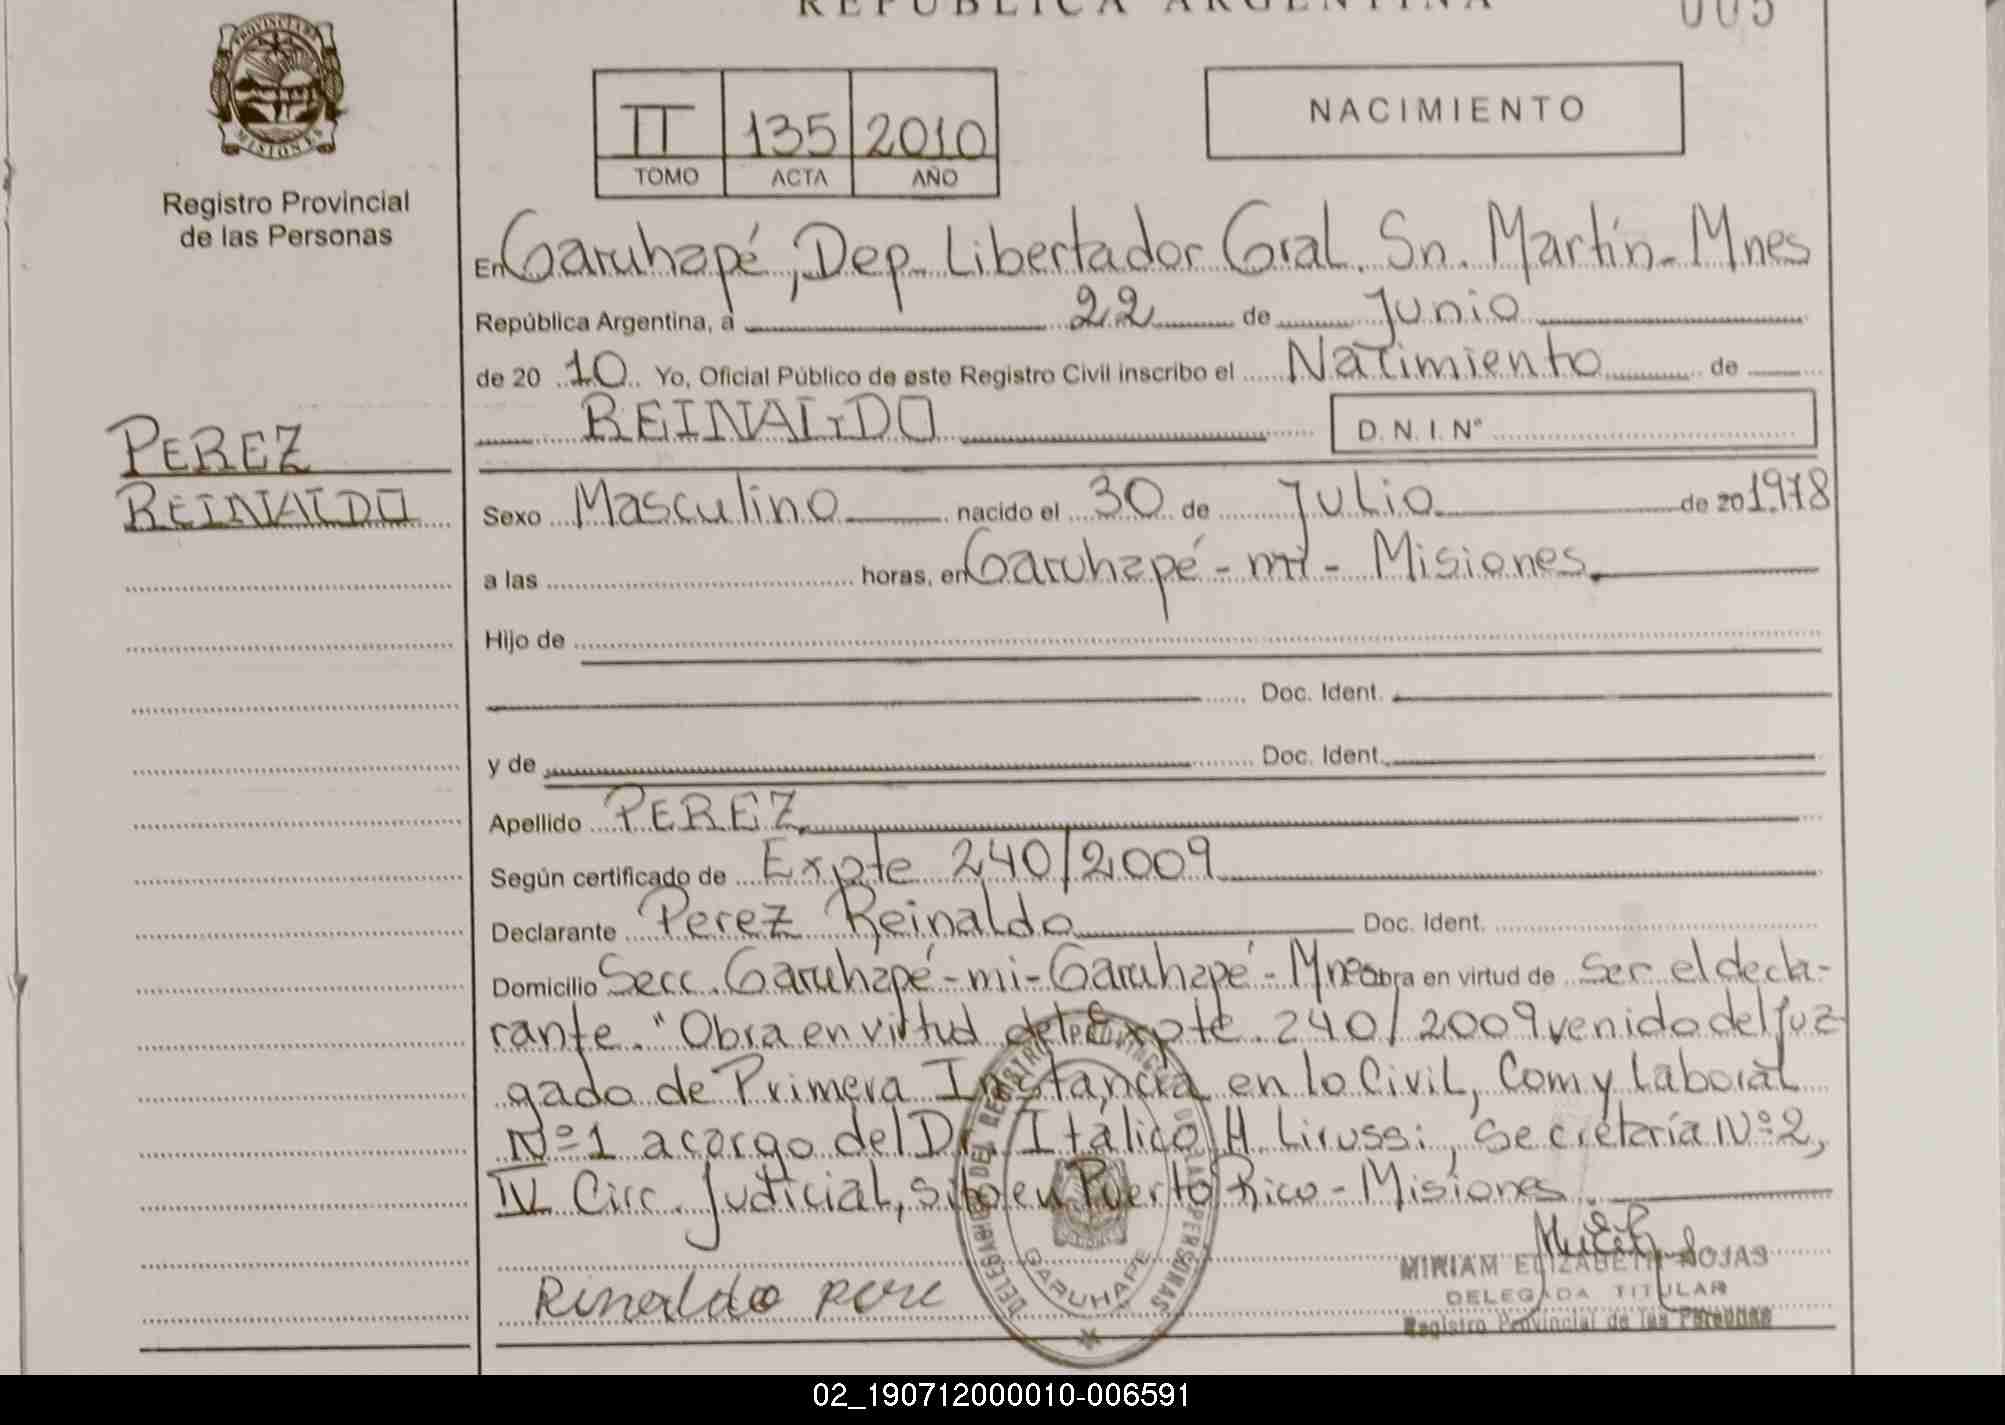 REPUBLICA ARGENTINA
005
PROVINCIA DE
MISIONES
Registro Provincial
de las Personas
II 135 2010
TOMO ACTA AÑO
NACIMIENTO
En Garuhapé, Dep. Libertador Gral. Sn. Martín - Mnes
República Argentina, a 22 de Junio
de 20 10. Yo, Oficial Público de este Registro Civil inscribo el Natimiento de
REINALDO D. N. I. N°
PEREZ
REINALDO
Sexo Masculino nacido el 30 de Julio de 20 1978
a las horas, en Garuhapé - mi - Misiones.
Hijo de
Doc. Ident.
y de Doc. Ident.
Apellido PEREZ
Según certificado de Expte 240/2009
Declarante Perez Reinaldo Doc. Ident.
Domicilio Secc. Garuhapé - mi - Garuhapé - Mnes Obra en virtud de Ser el decla-
rante. "Obra en virtud del Expte. 240/2009 venido del Juz
gado de Primera Instancia en lo Civil, Com y Laboral
Nº 1 a cargo del Dr. Itálico H. Lirussi, Secretaría Nº 2,
IV Circ. Judicial, sito en Puerto Rico - Misiones
Rinaldo pere
DELEGACION DEL REGISTRO PROVINCIAL DE LAS PERSONAS
GARUHAPE
MIRIAM ELIZABETH ROJAS
DELEGADA TITULAR
Registro Provincial de las Personas
02_190712000010-006591